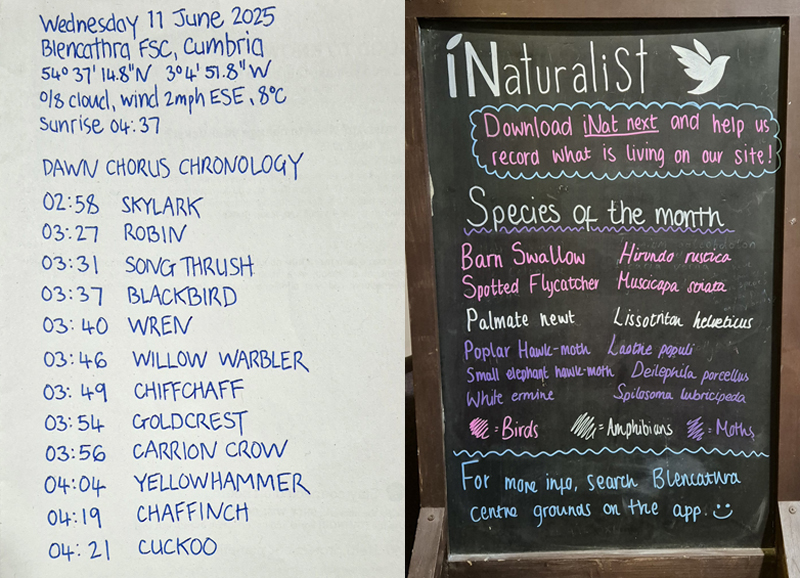 Wednesday 11 June 2025
Blencathra FSC, Cumbria
54° 37' 14.8"N 3° 4' 51.8"W
0/8 cloud, wind 2mph ESE, 8°C
Sunrise 04:37
DAWN CHORUS CHRONOLOGY
02:58 SKYLARK
03:27 ROBIN
03:31 SONG THRUSH
03:37 BLACKBIRD
03:40 WREN
03:46 WILLOW WARBLER
03:49 CHIFFCHAFF
03:54 GOLDCREST
03:56 CARRION CROW
04:04 YELLOWHAMMER
04:19 CHAFFINCH
04:21 CUCKOO
iNaturaliSt
Download iNat next and help us
record what is living on our site!
Species of the month
Barn Swallow Hirundo rustica
Spotted Flycatcher Muscicapa striata
Palmate newt Lissotriton helveticus
Poplar Hawk-moth Laothe populi
Small elephant hawk-moth Deilephila porcellus
White ermine Spilosoma lubricipeda
= Birds = Amphibians = Moths
For more info, search Blencathra
centre grounds on the app. :)